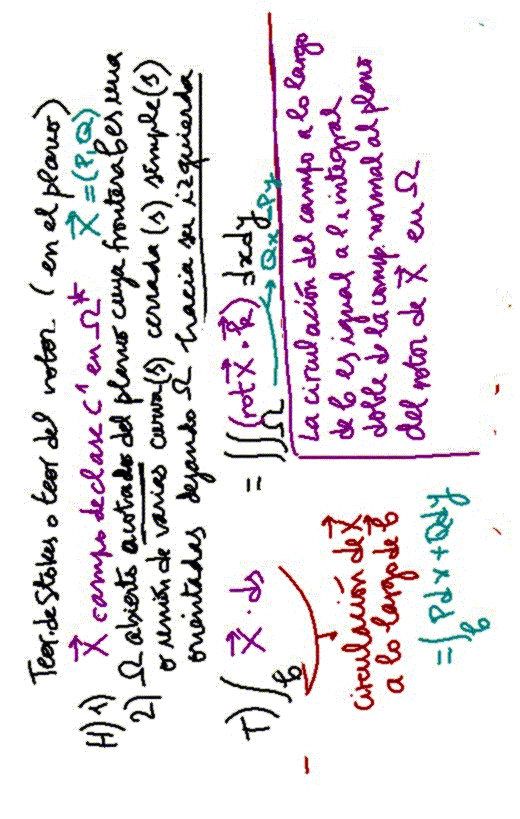 Teor. de Stokes o teor del rotor. (en el plano)
H) 1) X⃗ campo de clase C¹ en Ω* X⃗ = (P, Q)
2) Ω abierto acotado del plano cuya frontera b es una
o reunión de varias curva(s) cerrada(s) simple(s)
orientadas dejando Ω hacia su izquierda
T) ∫_b X⃗ · ds = ∬_Ω (rot X⃗ · k⃗) dxdy
Qx - Py
circulación de X⃗
a lo largo de b
= ∫_b Pdx + Qdy
La circulación del campo a lo largo
de b es igual a la integral
doble de la comp. normal al plano
del rotor de X⃗ en Ω